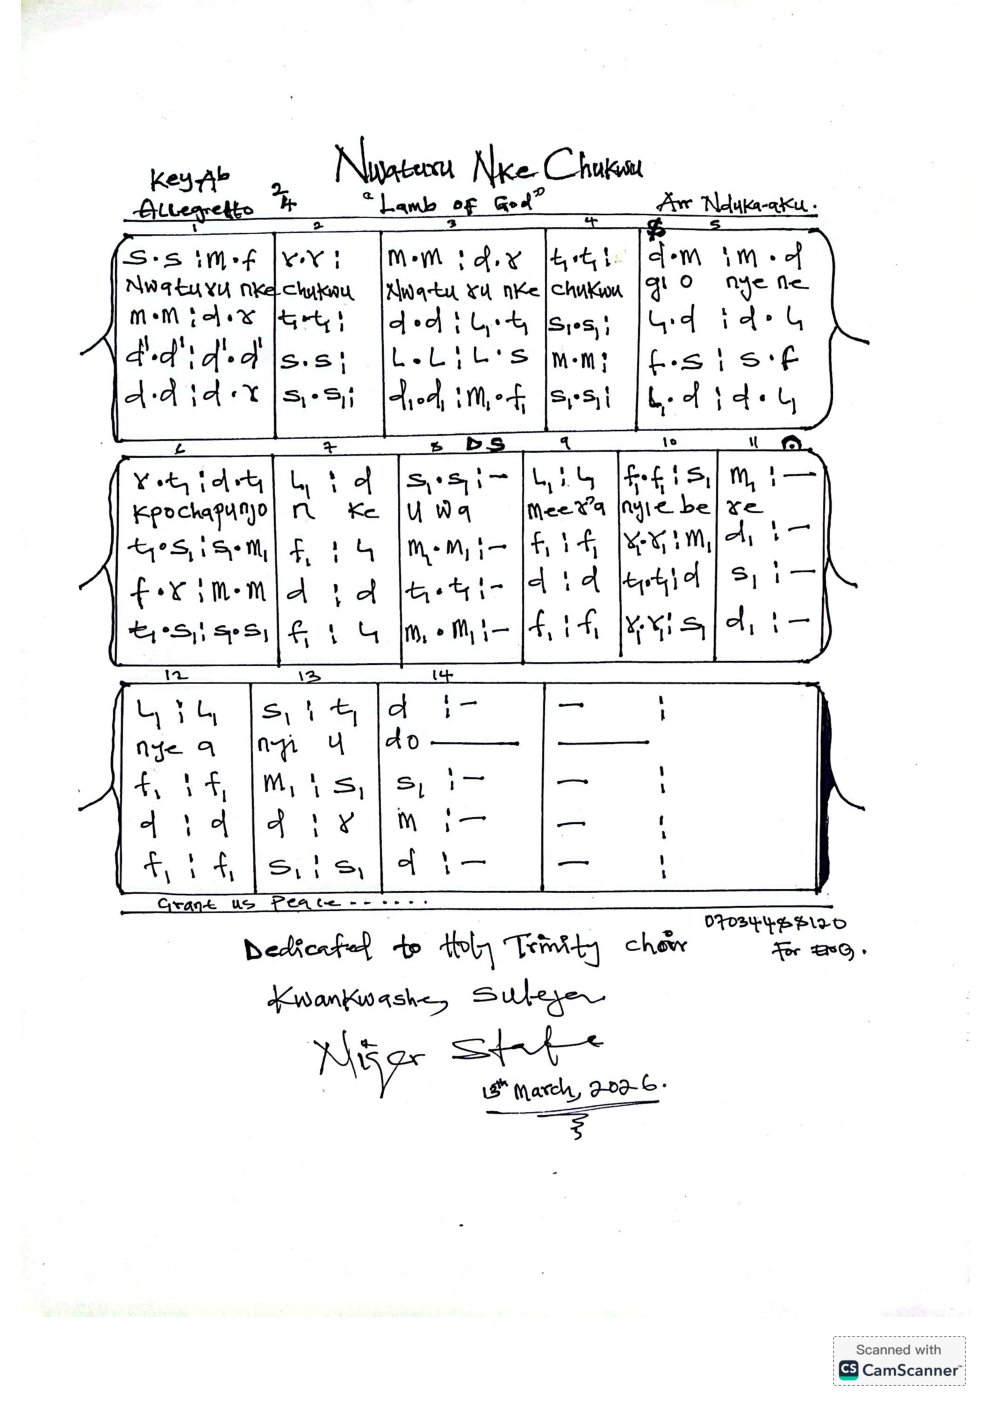 Nwaturu Nke Chukwu
Key Ab
Allegretto 2/4 "Lamb of God" Arr Nduka-aku.
1 2 3 4 5
s.s :m.f r.r : m.m : d.r t₁.t₁ : d.m :m.d
Nwaturu nke chukwu Nwatu ru nke chukwu gi o nye ne
m.m :d.r t₁.t₁ : d.d : l₁.t₁ s₁.s₁ : l₁.d :d.l₁
d'.d' :d'.d' s.s : l.l : l.s m.m : f.s : s.f
d.d :d.r s₁.s₁ : d₁.d₁ :m₁.f₁ s₁.s₁ : l₁.d :d.l₁
6 7 8 DS 9 10 11
r.t₁ :d.t₁ l₁ : d s₁.s₁ :– l₁ : l₁ f₁.f₁ : s₁ m₁ :–
kpochapunjo n ke u wa mee r'a nyie be re
t₁.s₁ :s₁.m₁ f₁ : l₁ m₁.m₁ :– f₁ : f₁ r₁.r₁ : m₁ d₁ :–
f.r :m.m d : d t₁.t₁ :– d : d t₁.t₁ : d s₁ :–
t₁.s₁ :s₁.s₁ f₁ : l₁ m₁.m₁ :– f₁ : f₁ r₁.r₁ : s₁ d₁ :–
12 13 14
l₁ : l₁ s₁ : t₁ d :– – :
nye a nyi u do
f₁ : f₁ m₁ : s₁ s₁ :– – :
d : d d : r m :– – :
f₁ : f₁ s₁ : s₁ d :– – :
Grant us Peace ......
07034488120
Dedicated to Holy Trinity choir For
Kwankwashe, Suleja
Niger State
13th March, 2026.
Scanned with
CS CamScanner